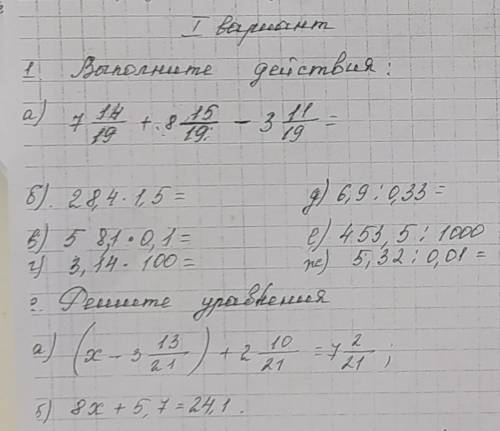 I вариант
1. Выполните действия:
а) 7 14/19 + 8 15/19 - 3 11/19 =
б) 28,4 · 1,5 = д) 6,9 : 0,33 =
в) 5 8,1 · 0,1 = е) 453,5 : 1000
г) 3,14 · 100 = ж) 5,32 : 0,01 =
2. Решите уравнения
а) (x - 3 13/21) + 2 10/21 = 7 2/21;
б) 8x + 5,7 = 24,1.